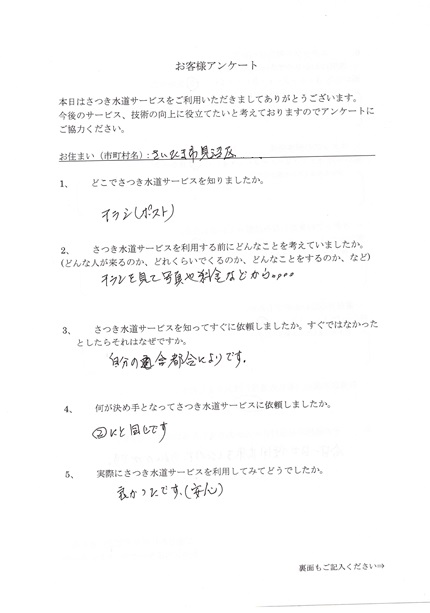 お客様アンケート
本日はさつき水道サービスをご利用いただきましてありがとうございます。
今後のサービス、技術の向上に役立てたいと考えておりますのでアンケートに
ご協力ください。
お住まい（市町村名）：さいたま市見沼区
1、 どこでさつき水道サービスを知りましたか。
チラシ(ポスト)
2、 さつき水道サービスを利用する前にどんなことを考えていましたか。
(どんな人が来るのか、どれくらいでくるのか、どんなことをするのか、など)
チラシを見て写真や料金などから。。。。
3、 さつき水道サービスを知ってすぐに依頼しましたか。すぐではなかった
としたらそれはなぜですか。
自分の都合によりです。
4、 何が決め手となってさつき水道サービスに依頼しましたか。
②にと同じです
5、 実際にさつき水道サービスを利用してみてどうでしたか。
良かったです。(安心)
裏面もご記入ください⇒